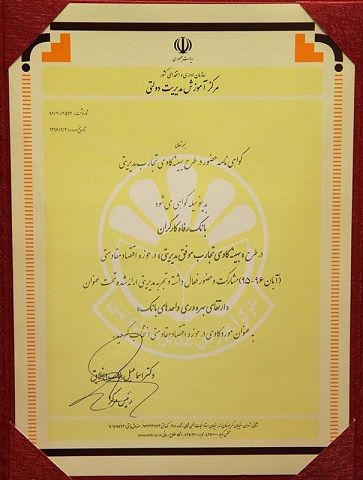 ریاست جمهوری
سازمان اداری و استخدامی کشور
مرکز آموزش مدیریت دولتی
بسمه تعالی
گواهی نامه حضور در طرح بهینه کاوی تجارب مدیریتی
بدینوسیله گواهی می شود
بانک رفاه کارگران
در طرح «بهینه کاوی تجارب موفق مدیریتی» در حوزه اقتصاد مقاومتی
(آبان ۹۶-۹۵) مشارکت و حضور فعال داشته و تجربه مدیریتی ارائه شده تحت عنوان
«ارتقای بهره وری واحدهای بانک»
به عنوان مورد کاوی در حوزه اقتصاد مقاومتی انتخاب گردید.
دکتر اسماعیل
رئیس مرکز